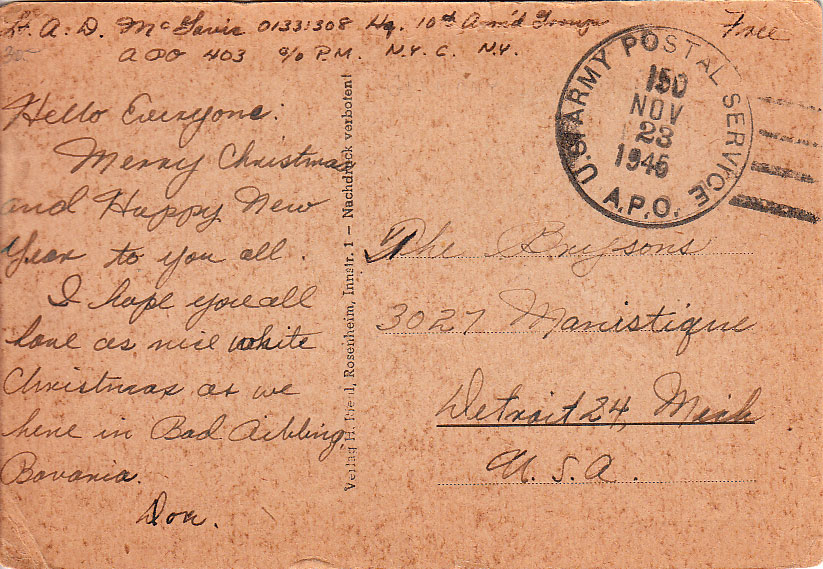 Lt. A. D. McGavin 01331308 Hq. 10th Arm'd Group
APO 403 c/o P.M. N.Y.C. N.Y.
Free
30-
U.S. ARMY POSTAL SERVICE
A.P.O.
150
NOV
23
1945
Hello Everyone:
Merry Christmas
and Happy New
Year to you all.
I hope you all
have as nice white
Christmas as we
here in Bad Aibling,
Bavaria.
Don.
Verlag H. Rie, Rosenheim, Innstr. 1 – Nachdruck verboten!
The Brysons
3027 Manistique
Detroit 24, Mich
U.S.A.